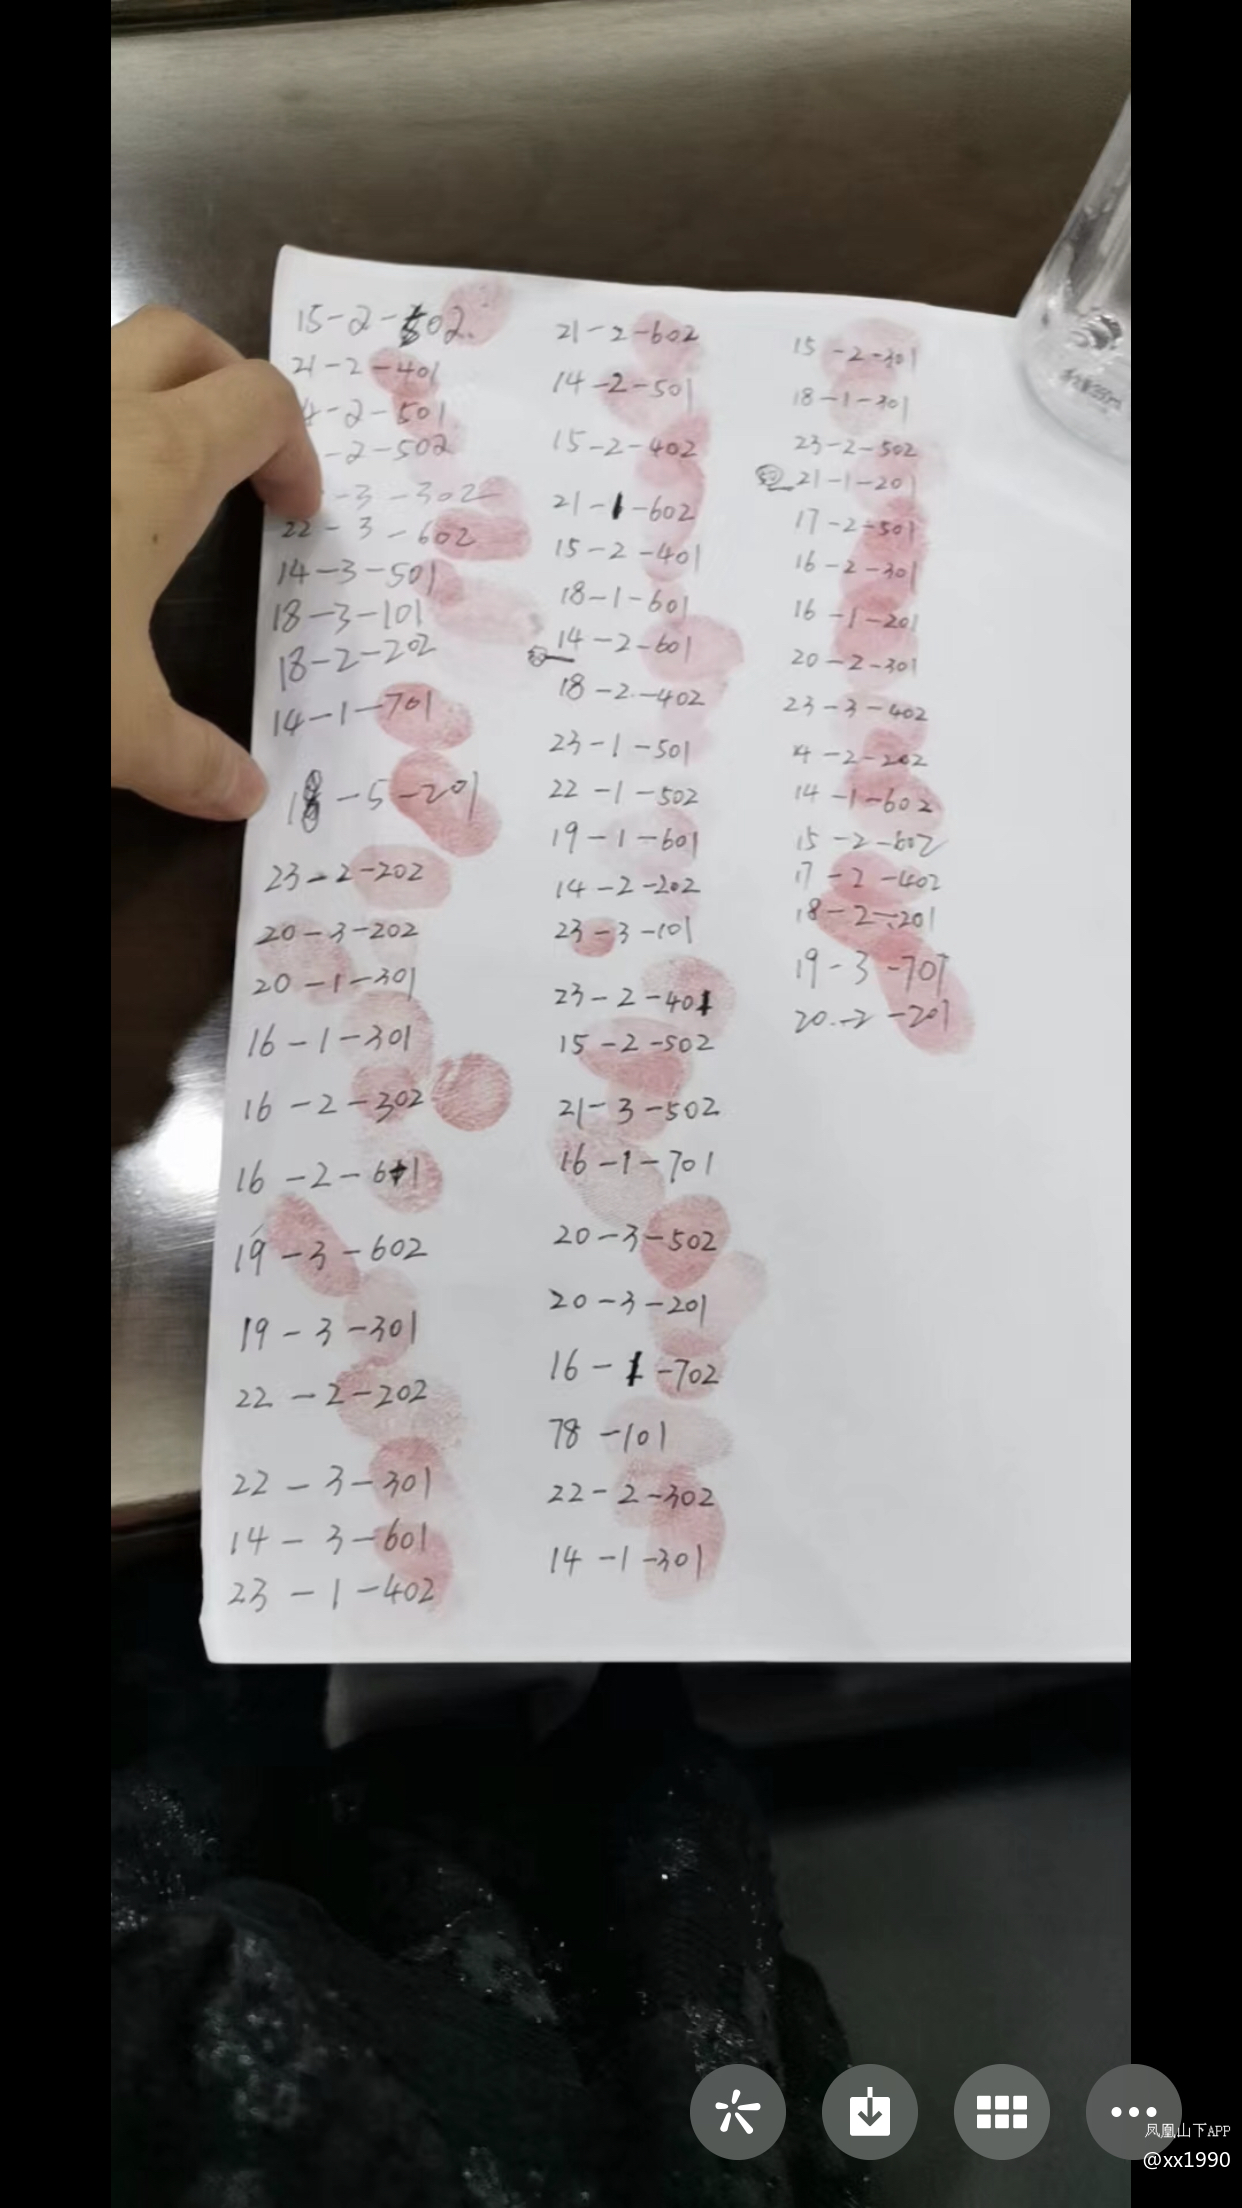 15-2-502
21-2-401
4-2-501
-2-502
-3-302
22-3-602
14-3-501
18-3-101
18-2-202
14-1-701
18-5-201
23-2-202
20-3-202
20-1-301
16-1-301
16-2-302
16-2-601
19-3-602
19-3-301
22-2-202
22-3-301
14-3-601
23-1-402
21-2-602
14-2-501
15-2-402
21-1-602
15-2-401
18-1-601
14-2-601
18-2-402
23-1-501
22-1-502
19-1-601
14-2-202
23-3-101
23-2-401
15-2-502
21-3-502
16-1-701
20-3-502
20-3-201
16-1-702
78-101
22-2-302
14-1-301
15-2-301
18-1-301
23-2-502
21-1-201
17-2-501
16-2-301
16-1-201
20-2-301
23-3-402
14-2-202
14-1-602
15-2-602
17-2-402
18-2-201
19-3-701
20-2-201
凤凰山下APP
@xx1990